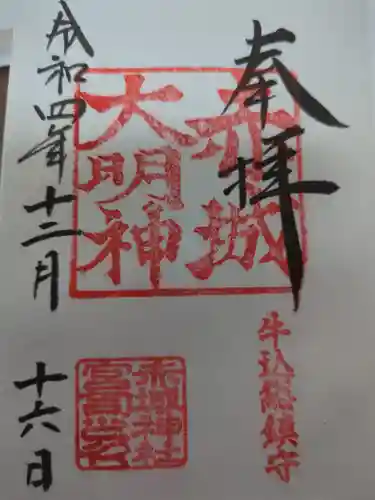 奉拝
赤城
大明神
牛込総鎮守
赤城神社
宮司之印
令和四年十二月
十六日